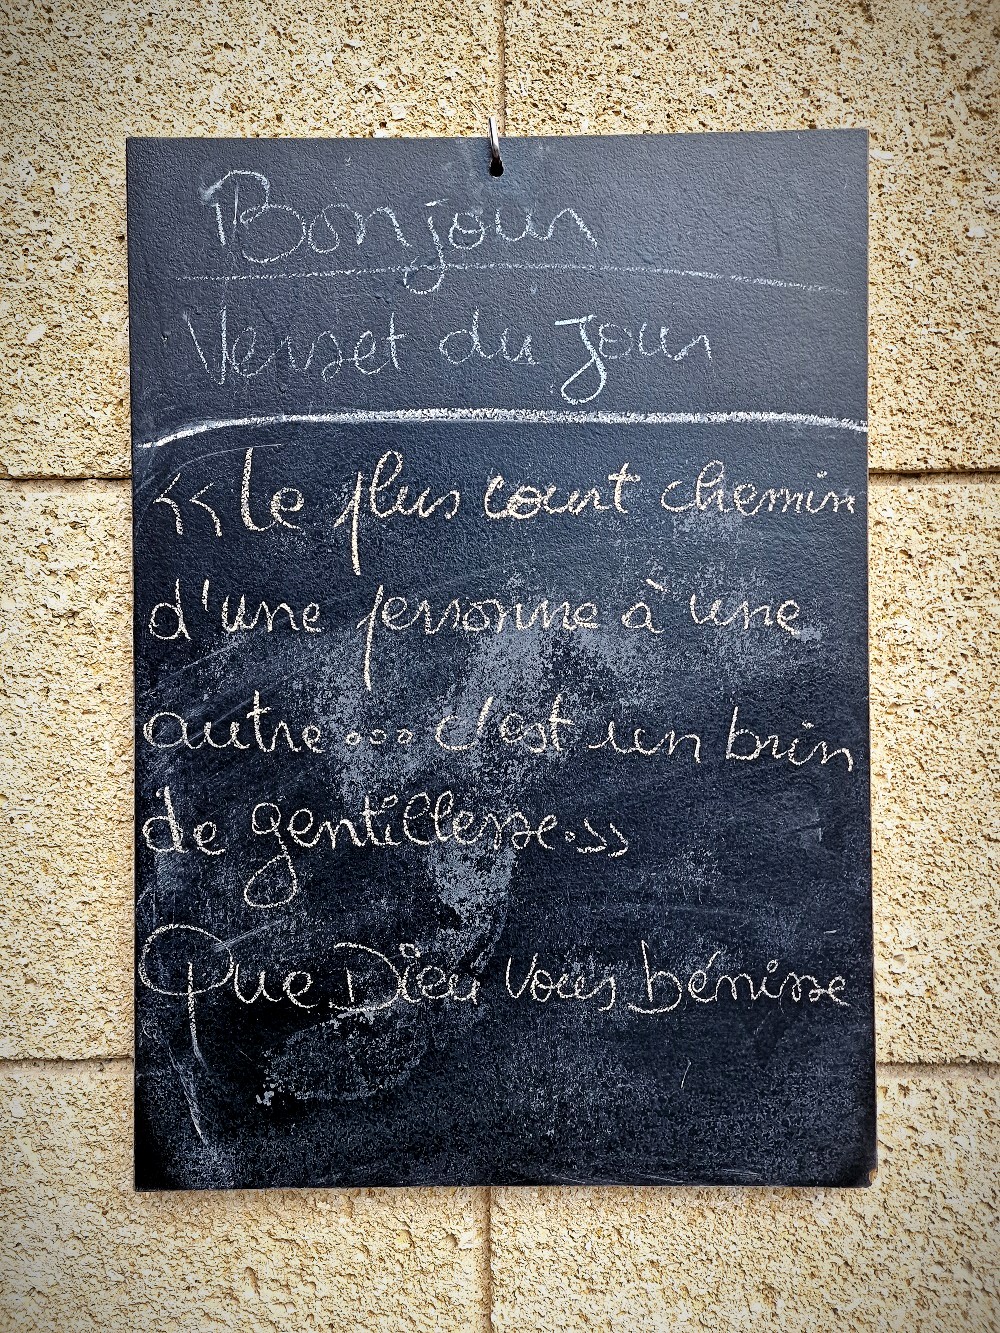 Bonjour
Verset du Jour
<<Le plus court chemin
d'une personne à une
autre... c'est un brin
de gentillesse.>>
Que Dieu vous bénisse